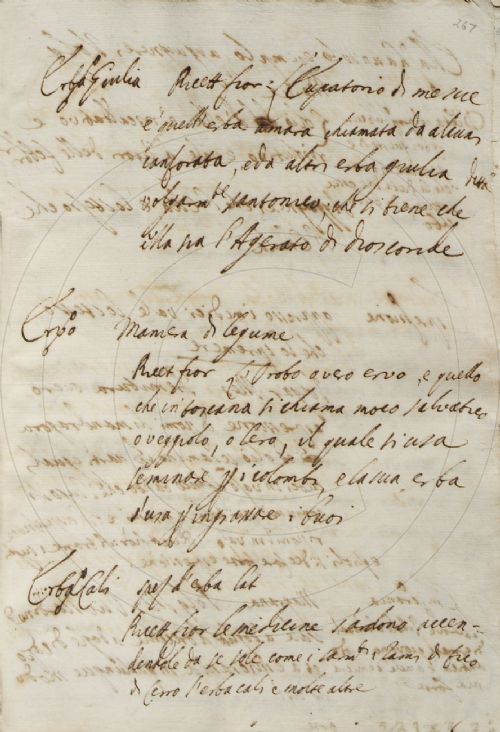 267
Erba Giulia Ricett fior: L'Eupatorio di mesue
è quell'erba amara chiamata da alcuni
canforata, e da altri erba giulia detta
volgarmte santonico, che si tiene che
ella sia l'Agerato di dioscoride
Ervo Maniera di legume
Ricett fior L'Orobo overo ervo, e quello
che in toscana si chiama moco salvatico
o veggiolo, o lero, il quale si usa
seminare pi colombi, e la sua erba
s'usa p ingrassare i buoi
Erba Cali spe d'erba lat
Ricett fior le medicine s'ardono accen-
dendole da se sole come i sarmti i rami di fico
di Cerro l'erba cali e molte altre